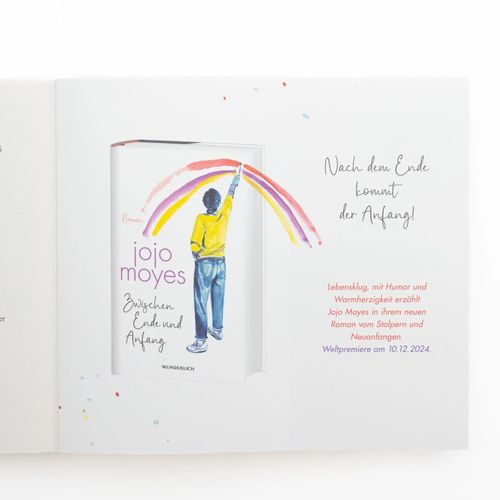 s
er
Roman
jojo
moyes
Zwischen
Ende und
Anfang
WUNDERLICH
Nach dem Ende
kommt
der Anfang!
Lebensklug, mit Humor und
Warmherzigkeit erzählt
Jojo Moyes in ihrem neuen
Roman vom Stolpern und
Neuanfangen.
Weltpremiere am 10.12.2024.